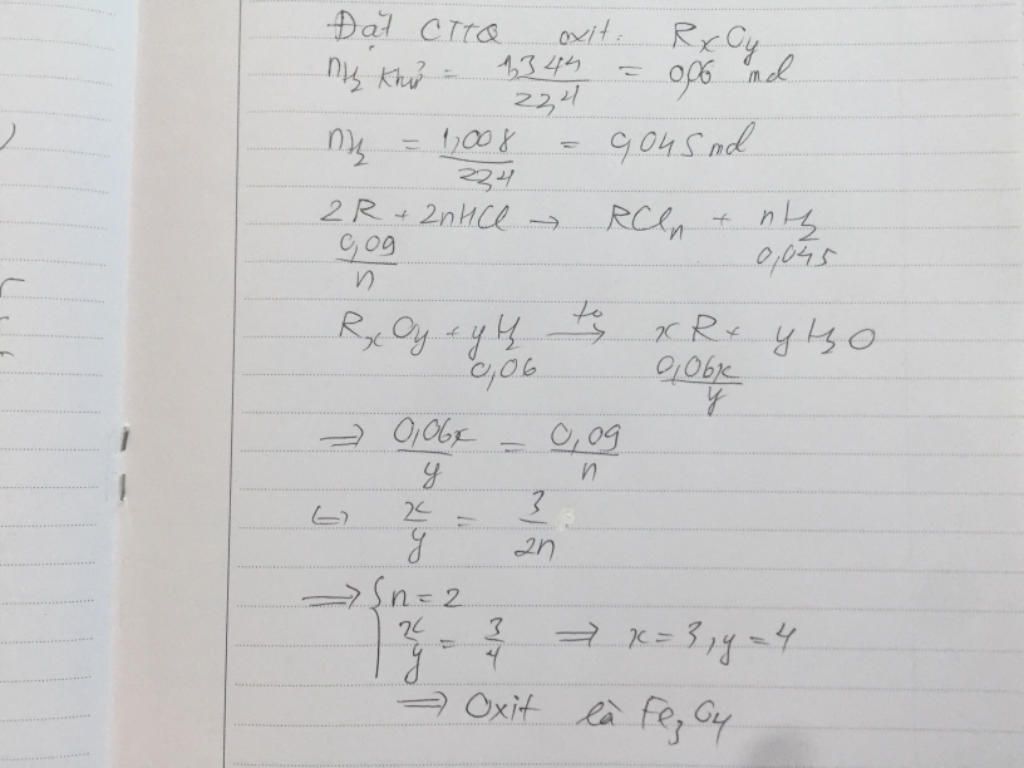 Đặt CTTQ oxit: RxOy
nH2 khử = 1,344/22,4 = 0,06 mol
nH2 = 1,008/22,4 = 0,045 mol
2R + 2nHCl → RCln + nH2
0,09/n 0,045
RxOy + yH2 →(to) xR + yH2O
0,06 0,06x/y
⇒ 0,06x/y = 0,09/n
⇔ x/y = 3/2n
⇒ { n = 2
x/y = 3/4 ⇒ x = 3, y = 4
⇒ Oxit là Fe3O4